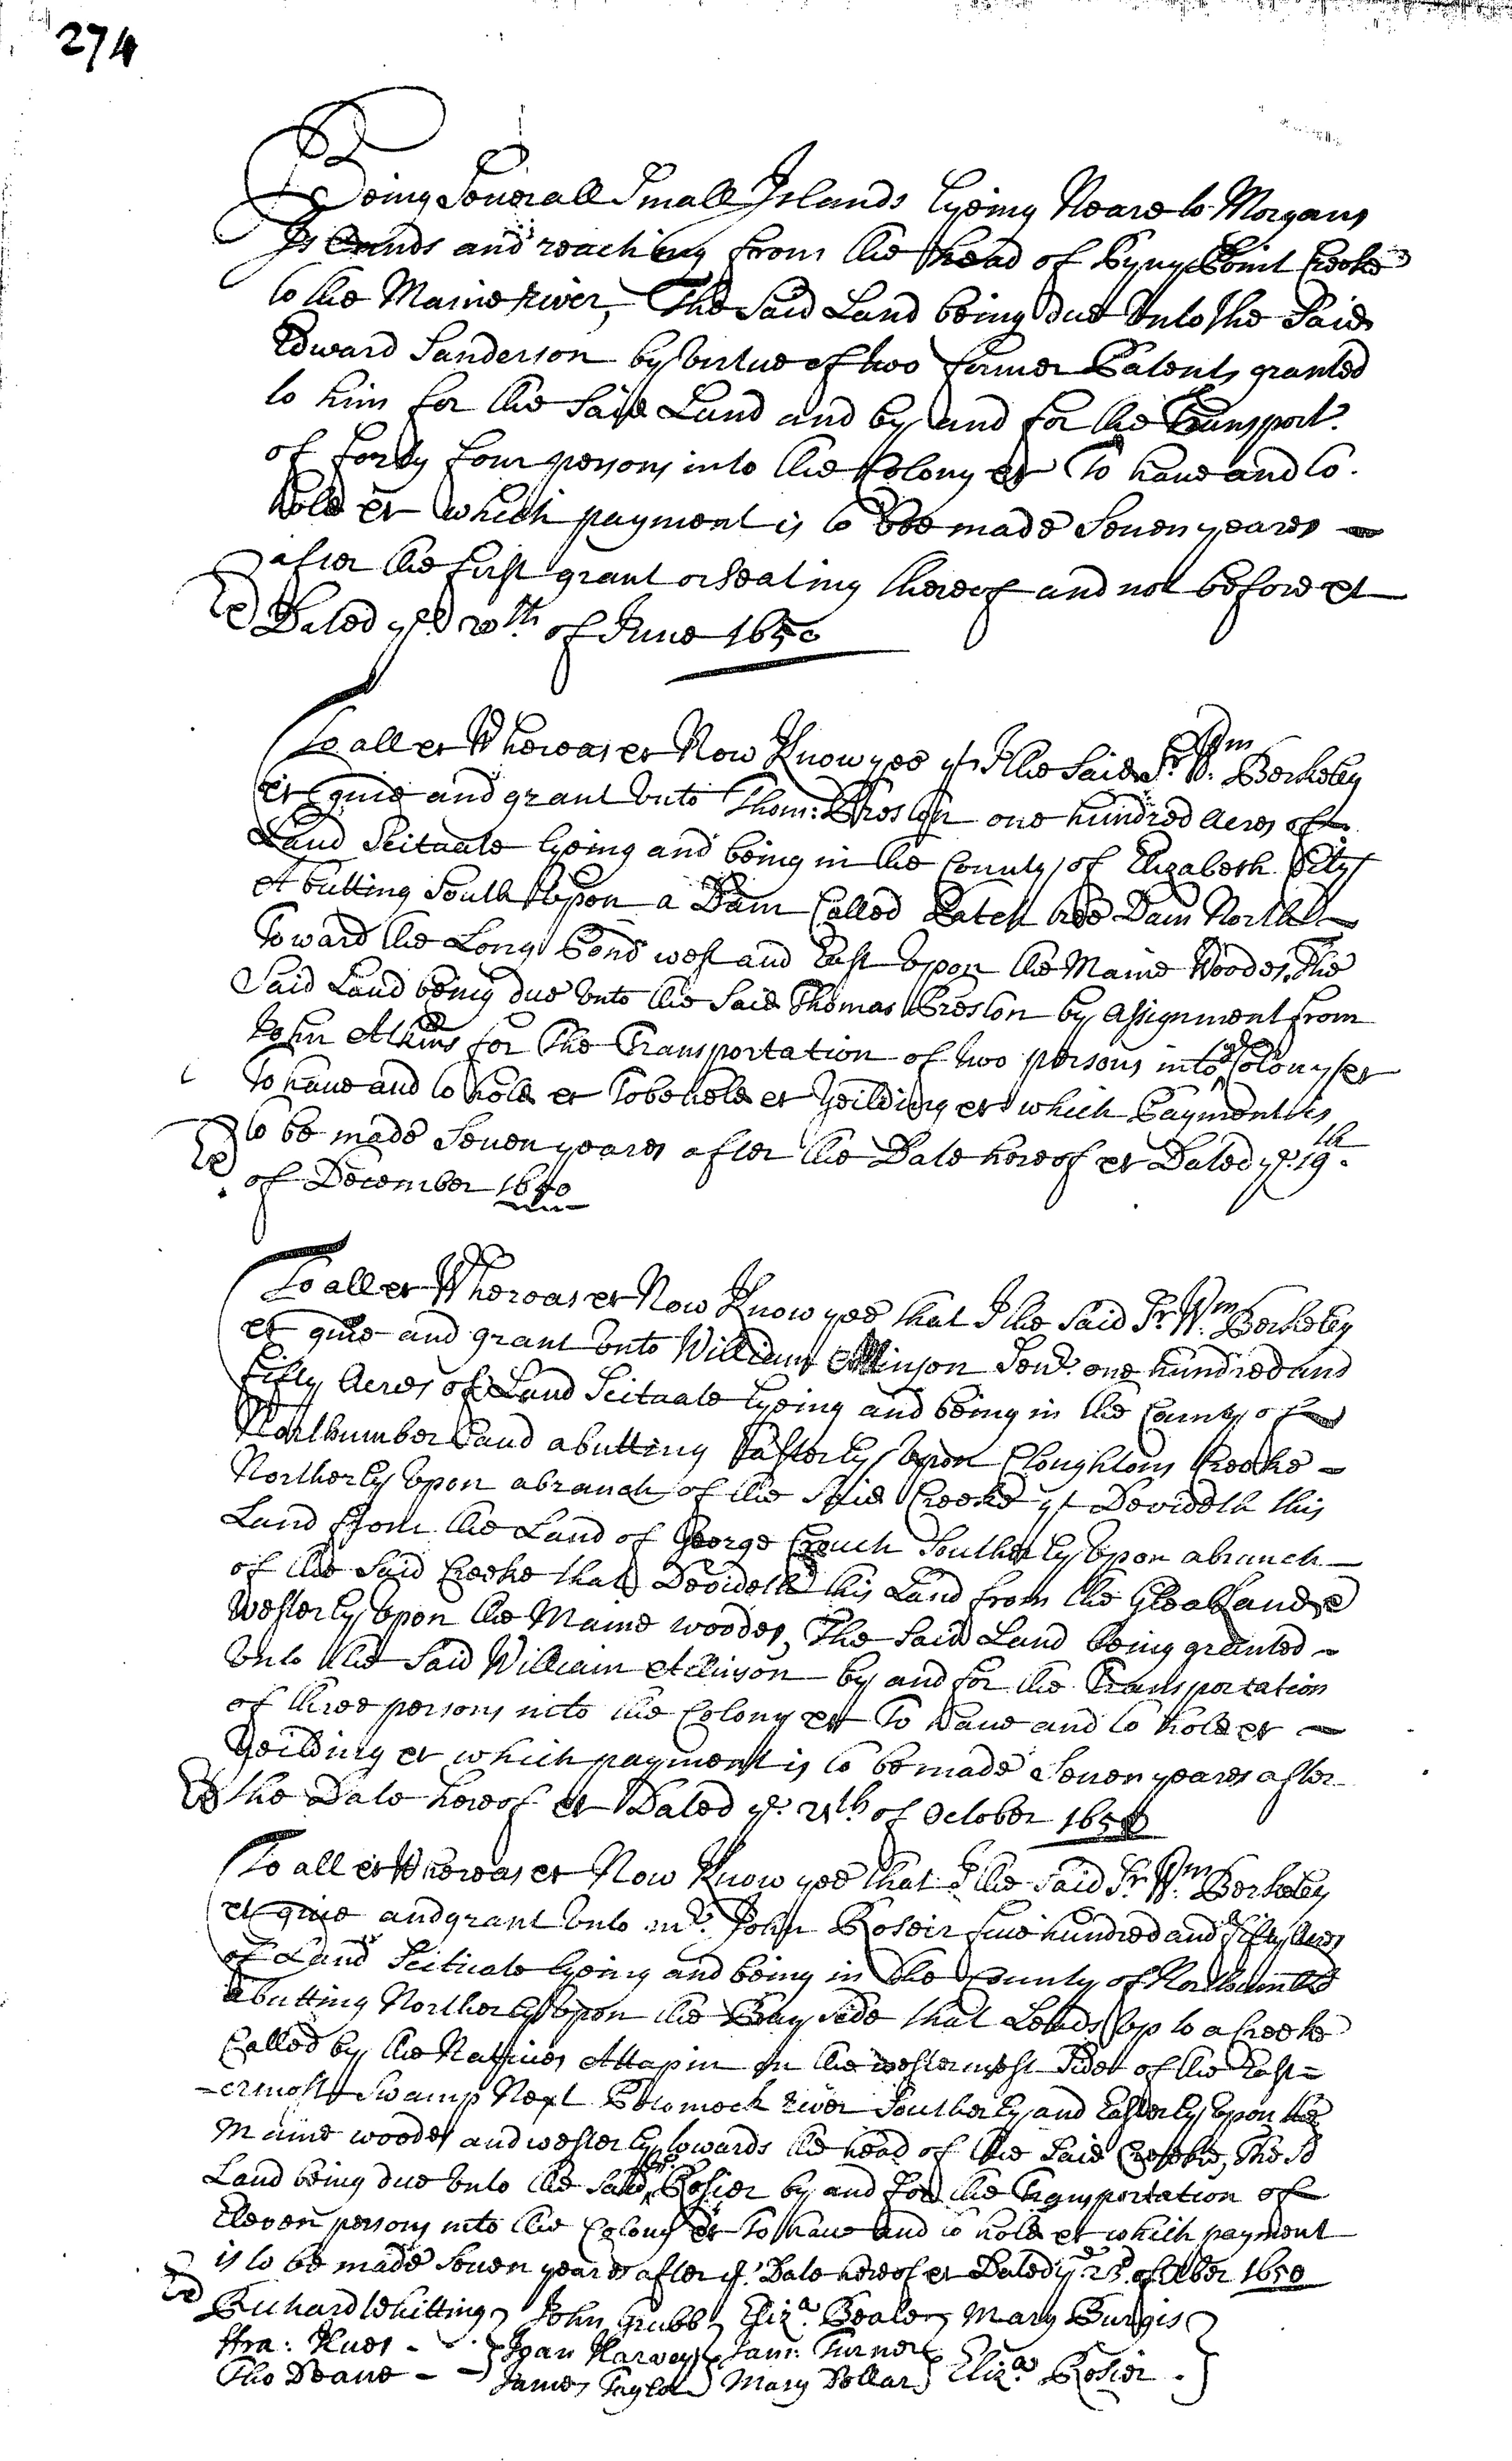 274
Being Severall Small Islands Lyeing Neare to Morgans
Islands and reaching from the head of Pyny Point Creeke
to the Maine River, The Said Land being due Unto the Said
Edward Sanderson by Virtue of two former Patents granted
to him for the Said Land and by and for the Transport:
of forty four persons into the Colony et To have and to
hold et which payment is to bee made Seven yeares
after the first grant or Seating thereof and not before et
Dated ye 20th of June 1650
To all et Whereas et Now Know yee yt I the Said Sr Wm Berkeley
et give and grant Unto Thom: Preston one hundred Acres of
Land Scituate Lyeing and being in the County of Elizabeth Citty
Abutting South Upon a Dam Called Patch hee Dam North
Toward the Long Pond west and East Upon the Maine Woodes, The
Said Land being due Unto the Said Thomas Preston by Assignment from
John Atkins for The Transportation of two persons into ye Colony et
To have and to hold et To be held et Yeilding et which Payment is
to be made Seven yeares after the Date hereof et Dated ye 19th
of December 1650
To all et Whereas et Now Know yee that I the Said Sr Wm Berkeley
et give and grant Unto William Allinson Senr one hundred and
fifty Acres of Land Scituate Lyeing and being in the County of
Northumberland abutting Easterly Upon Cloughtons Creeke
Northerly Upon a branch of the Said Creeke yt Devideth this
Land from the Land of George Crouch Southerly Upon a branch
of the Said Creeke that Devideth this Land from the Gleab Lande
Westerly Upon the Maine woodes, The Said Land being granted
Unto the Said William Allinson by and for the Transportation
of three persons into the Colony et To have and to hold et
Yeilding et which payment is to be made Seven yeares after
the Date hereof et Dated ye 21th of October 1650
To all et Whereas et Now Know yee that I the Said Sr Wm Berkeley
et give and grant Unto mr. John Roseir five hundred and fifty Acres
of Land Scituate Lyeing and being in the County of Northumbld
abutting Northerly Upon the Bay Side that Leads Up to a Creeke
Called by the Natives Attapin on the westermost Side of the East=
-ermost Swamp Next Potomock River Southerly and Easterly Upon the
Maine woodes and westerly towards the head of the Said Creeke, The Sd
Land being due Unto the Said mr. Rosier by and For the Transportation of
Eleven persons into the Colony et To have and to hold et which payment
is to be made Seven yeares after ye Date hereof et Dated ye 23d of 8ber 1650
Richard Whitting John Grubb Eliza. Beale Mary Burgis
ffra: Kues - Joan Harvey Jam: Turner
Tho Deane - James Taylor Mary Dollar Eliza Rosier